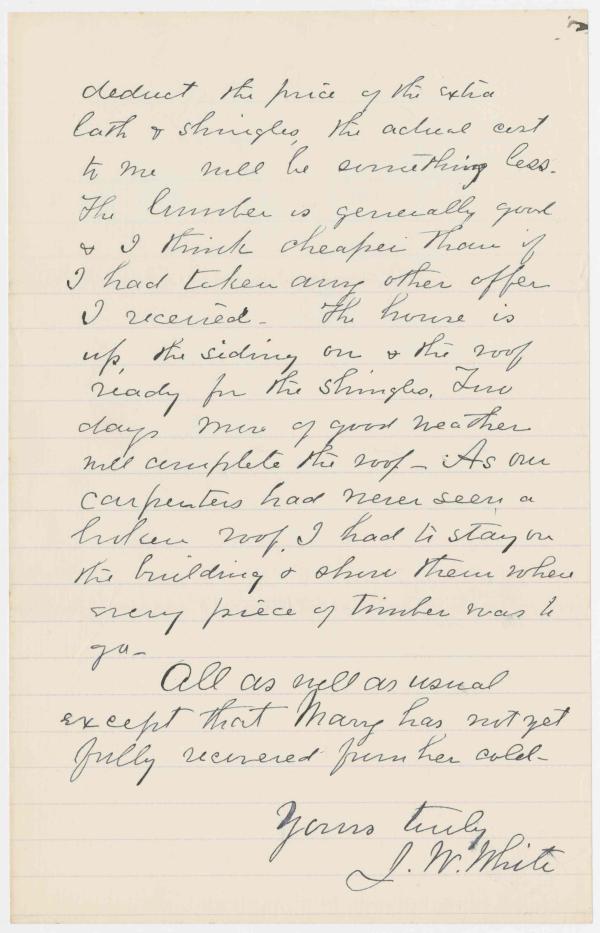 deduct the price of the extra
lath & shingles, the actual cost
to me will be something less.
The lumber is generally good
& I think cheaper than if
I had taken any other offer
I received. The house is
up, the siding on & the roof
ready for the shingles. Two
days more of good weather
will complete the roof - As our
carpenters had never seen a
broken roof, I had to stay on
the building & show them where
every piece of timber was to
go -
All as well as usual
except that Mary has not yet
fully recovered from her cold -
Yours truly
J. W. White